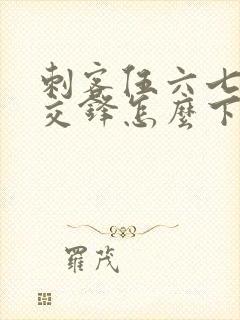 刺客伍六七
交鋒怎麼下
羅茂